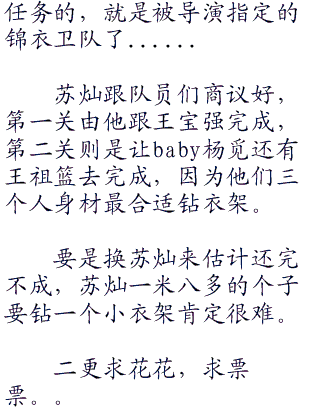 任务的，就是被导演指定的
锦衣卫队了......
苏灿跟队员们商议好，
第一关由他跟王宝强完成，
第二关则是让baby杨觅还有
王祖篮去完成，因为他们三
个人身材最合适钻衣架。
要是换苏灿来估计还完
不成，苏灿一米八多的个子
要钻一个小衣架肯定很难。
二更求花花，求票
票。。